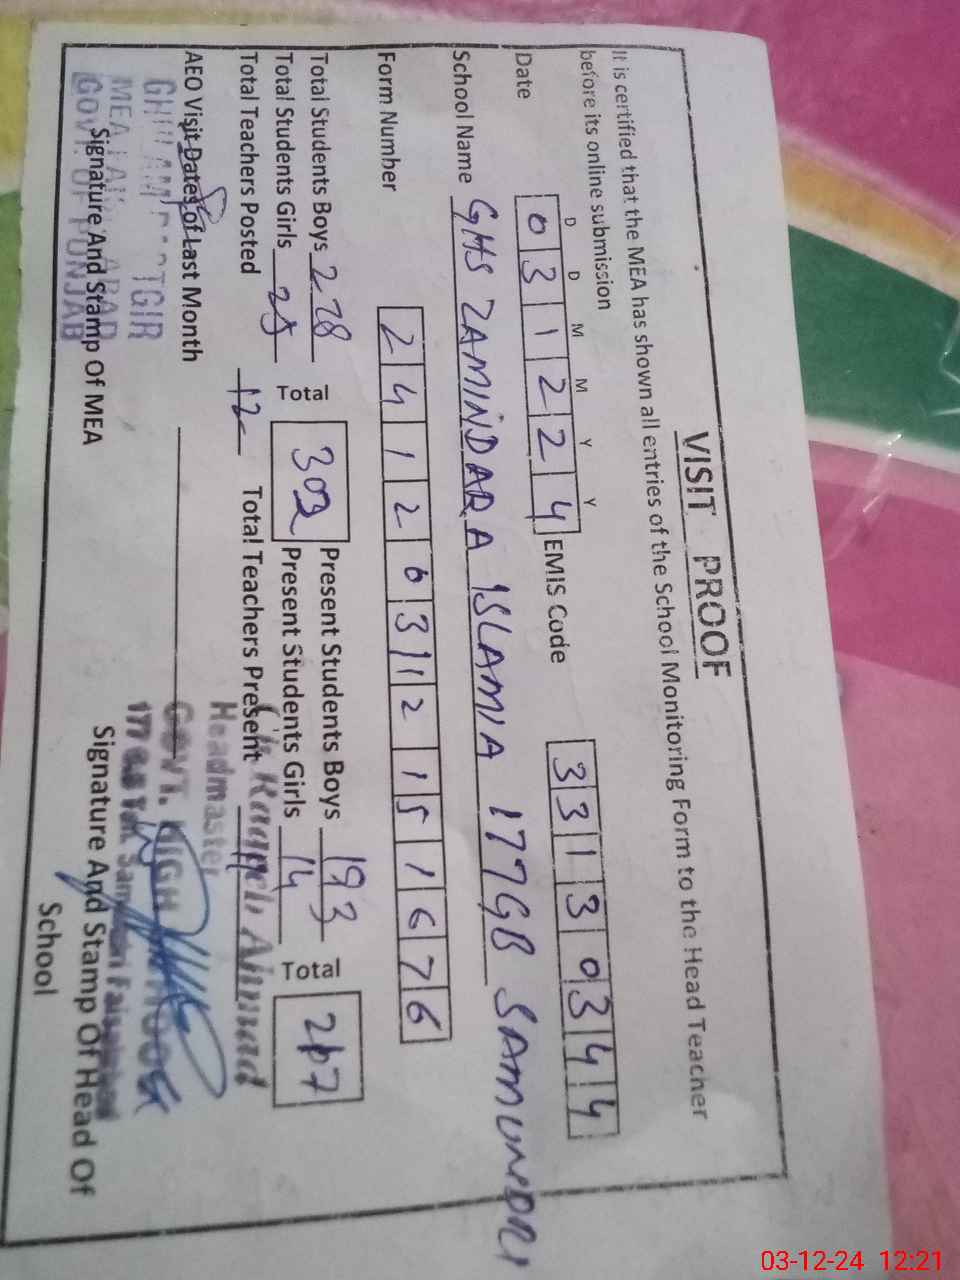 VISIT PROOF
It is certified that the MEA has shown all entries of the School Monitoring Form to the Head Teacher
before its online submission
D D M M Y Y
Date 0 3 1 2 2 4 EMIS Code 3 3 1 3 0 3 4 4
School Name GHS ZAMINDARA ISLAMIA 177GB SAMUNDRI
Form Number 2 4 1 2 0 3 1 1 2 1 5 1 6 7 6
Total Students Boys 278 Present Students Boys 193
Total 303 Total 207
Total Students Girls 25 Present Students Girls 14
Total Teachers Posted 12 Total Teachers Present 11
AEO Visit Dates of Last Month
GHULAM DASTGIR
MEA
GOVT. OF PUNJAB
Signature And Stamp Of MEA
Ahmad
Headmaster
GOVT. HIGH SCHOOL
177
Signature And Stamp Of Head Of
School
03-12-24 12:21